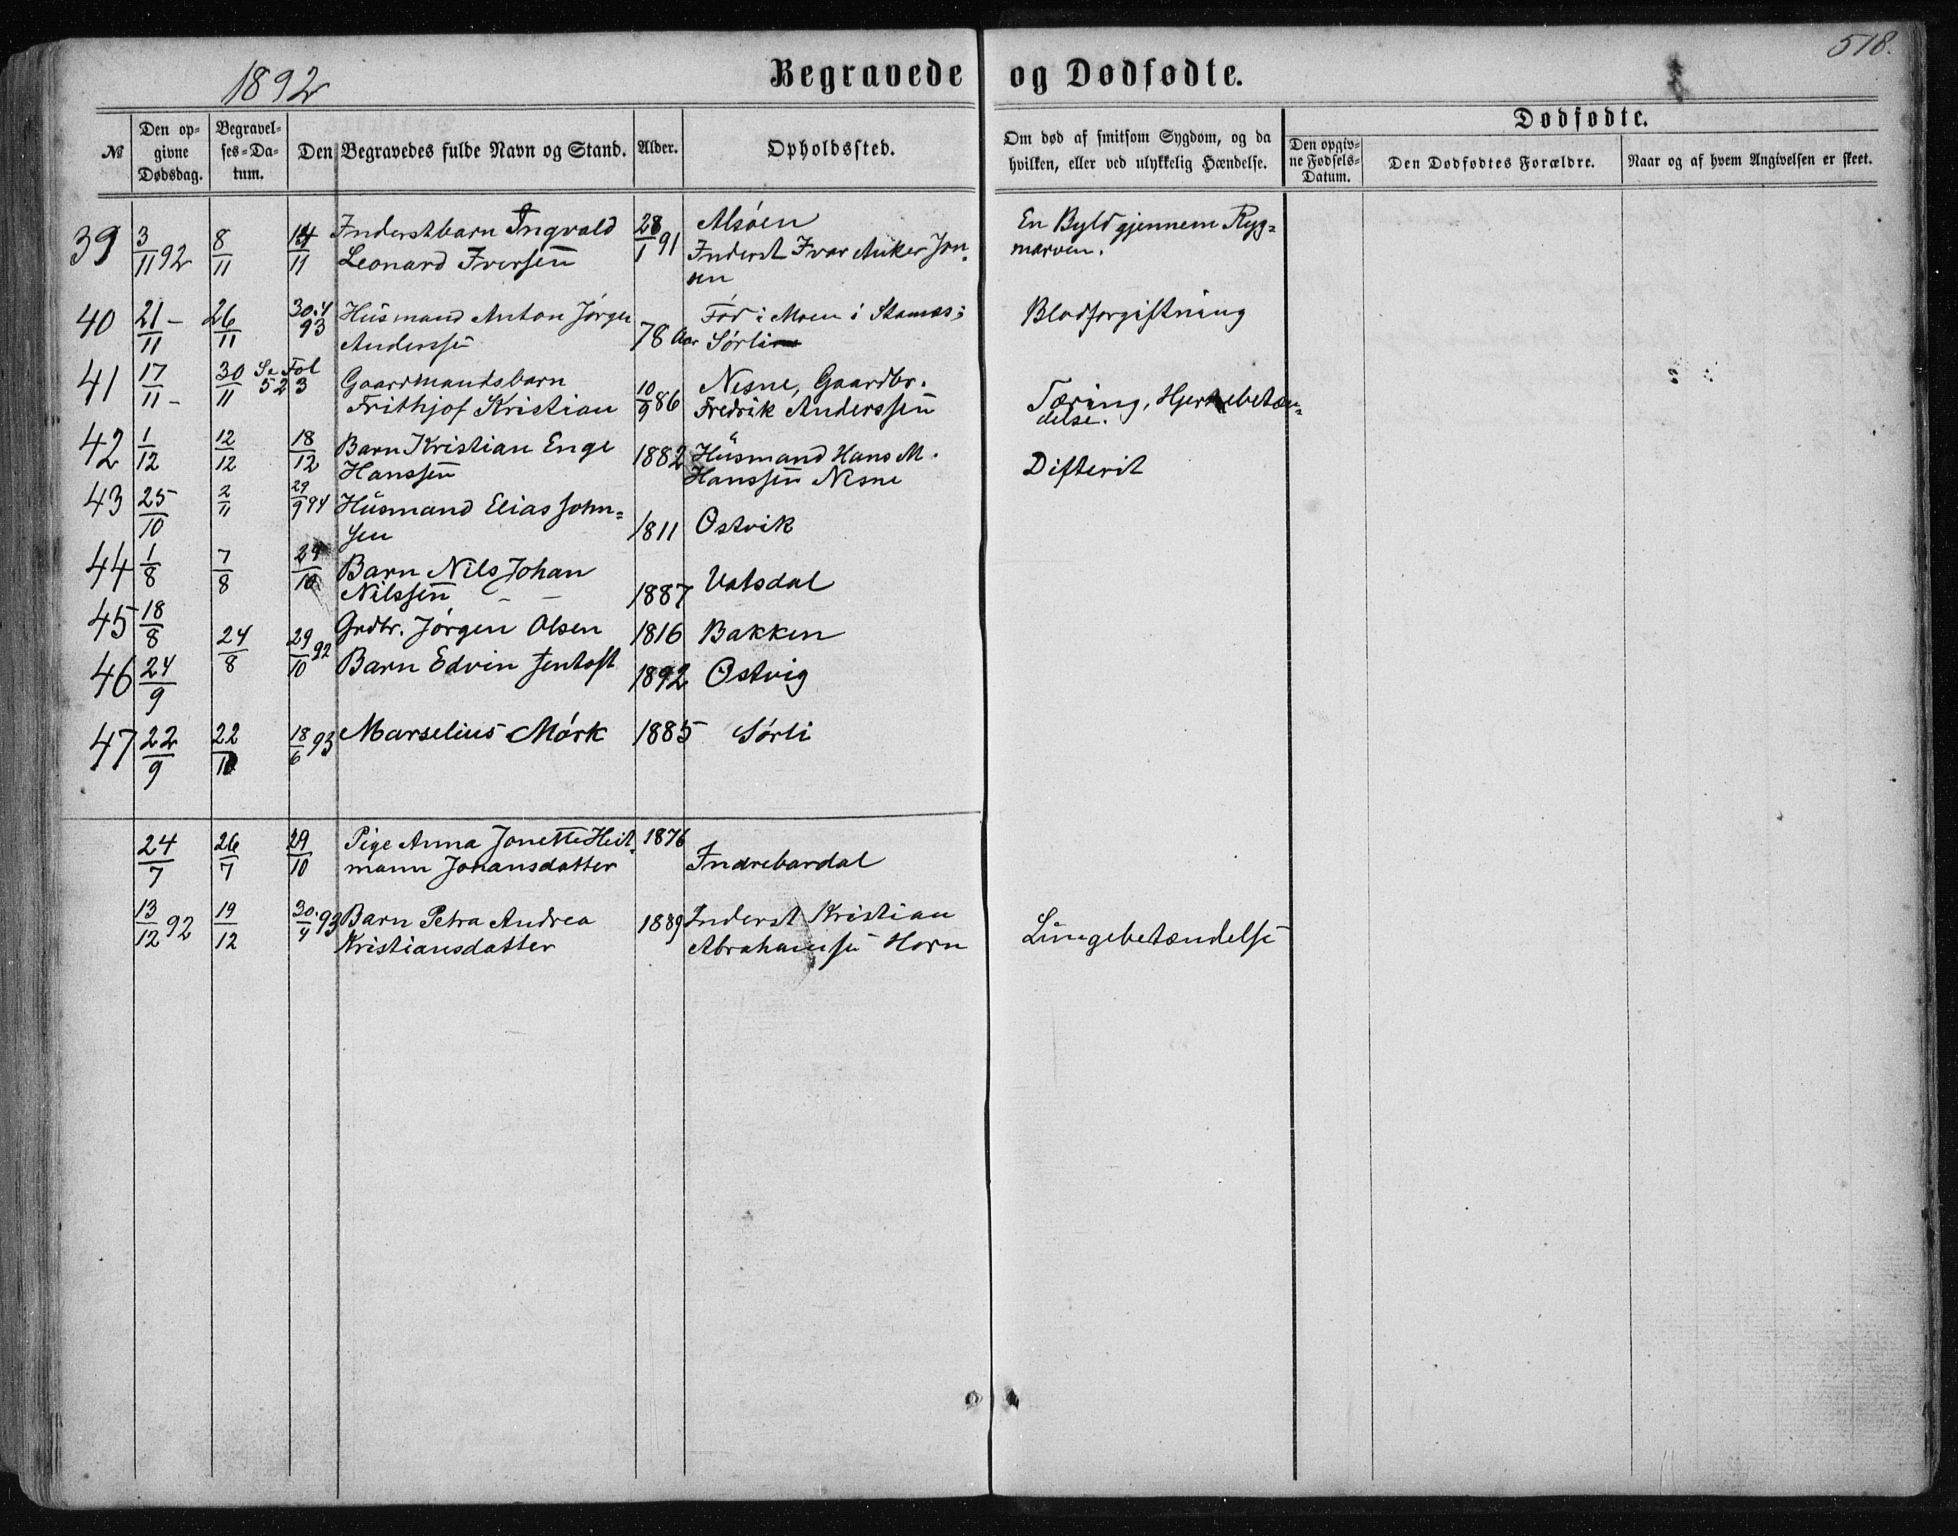 1892
Begravede og Dødfødte.
518.
№
Den opgivne Dødsdag.
Begravelses-Datum.
Den Begravedes fulde Navn og Stand.
Alder.
Opholdssted.
Om død af smitsom Sygdom, og da hvilken, eller ved ulykkelig Hændelse.
Dødfødte.
Den opgivne Fødsels-Datum.
Den Dødfødtes Forældre.
Naar og af hvem Angivelsen er skeet.
39 3/11 92 8/11 14/11 Inderstbarn Ingvald 28/1 91 Alsøen En Byld gjennem Ryg=
Leonard Iversen Inderst Ivar Anker Jon- marven.
sen
40 21/11 - 26/11 30.4 93 Husmand Anton Jørgen 78 Aar Fød i Moen i Stamnes; Blodforgiftning
Anderssen Sørli
41 17/11 - 30/11 Se Fol 523 Gaardmandsbarn 10/9 86 Nesne, Gaardbr. Tæring, Hjertebetæn=
Frithjof Kristian Fredrik Anderssen delse.
42 1/12 12/12 18/12 Barn Kristian Enge 1882 Husmand Hans M. Difterit
Hanssen Hanssen Nesne
43 25/10 2/11 29/9 94 Husmand Elias John=
sen 1811 Ostvik
44 1/8 7/8 29/10 Barn Nils Johan
Nilssen 1887 Vatsdal
45 18/8 24/8 29/10 92 Grdbr. Jørgen Olsen 1816 Bakken
46 24/9 Barn Edvin Jentoft 1892 Ostvig
47 22/9 22/10 18/6 93 Marselius Mørk 1885 Sørli
24/7 26/7 29/10 Pige Anna Jonette Heit- 1876
mann Johansdatter Indrebardal
13/12 92 19/12 30./4 93 Barn Petra Andrea 1889 Inderst Kristian Lungebetændelse
Kristiansdatter Abrahamsen Horn